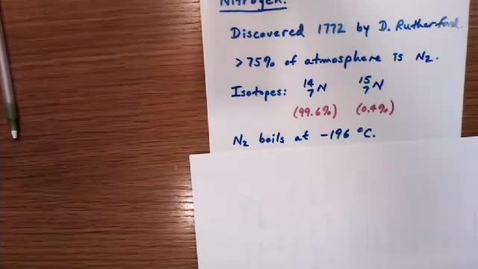 Nitrogen:
Discovered 1772 by D. Rutherford.
>75% of atmosphere is N₂.
Isotopes: ¹⁴₇N ¹⁵₇N
(99.6%) (0.4%)
N₂ boils at -196 °C.